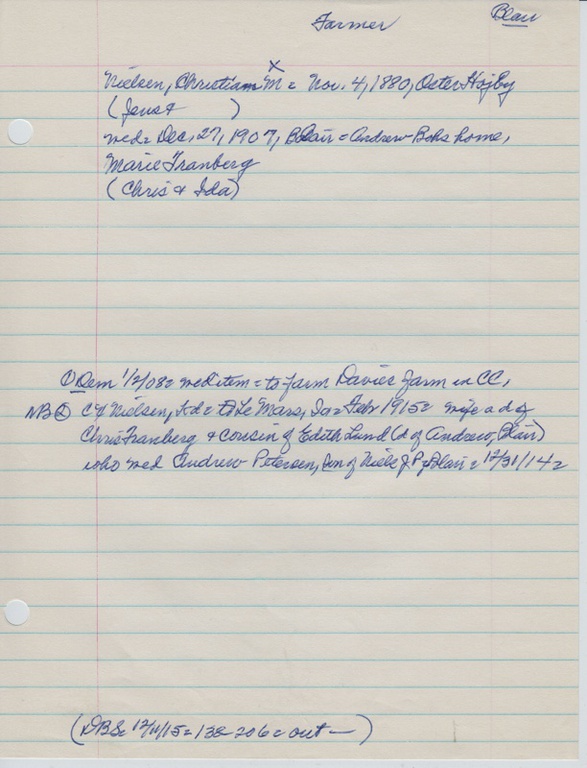 Farmer
Blair
x
Nielsen, Christian M = Nov. 4, 1880, Oster Hojby
(Jens & )
wed = Dec. 27, 1907, Blair = Andrew Bohs home,
Marie Tranberg
(Chris & Ida)
① Dem 1/2/08 = wed item = to farm Davies farm in CC,
NB② C M Nielsen, Kd = to Le Mars, Ia = Feb 1915 = wife a d of
Chris Tranberg & cousin of Edith Lund (d of Andrew, Blair)
who wed Andrew Petersen, son of Niels J P of Blair = 12/31/14 =
(DBS = 12/11/15 = 138 206 = out — )